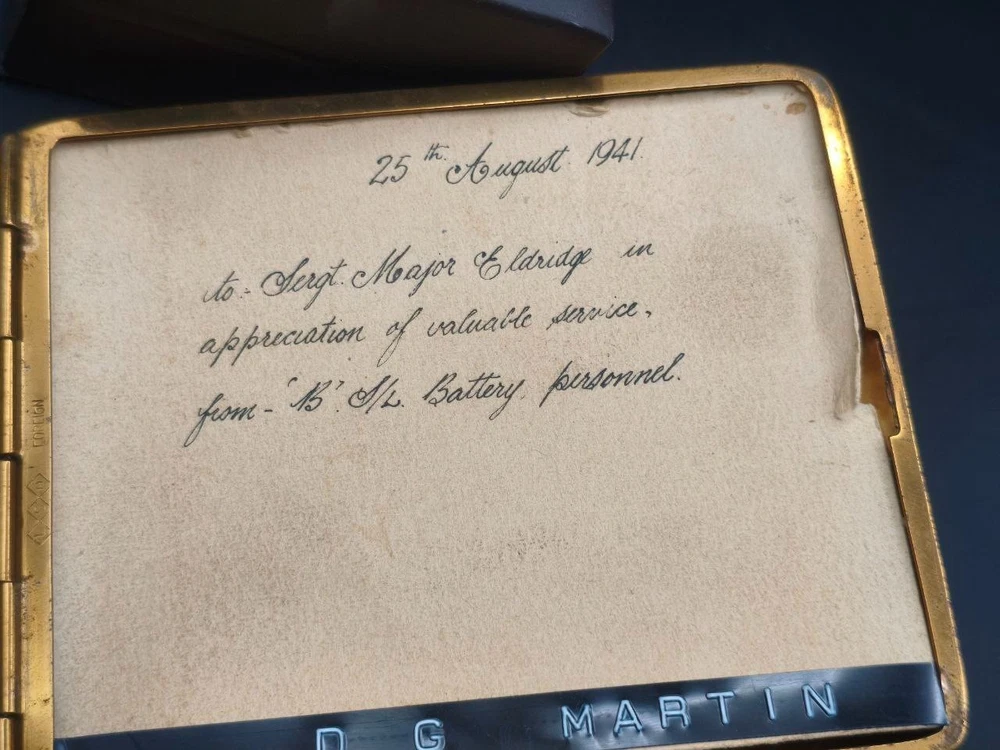 25th. August 1941.
to:- Sergt. Major Eldridge in
appreciation of valuable service.
from- 'B'. S/L. Battery. personnel.
FOREIGN
D G MARTIN